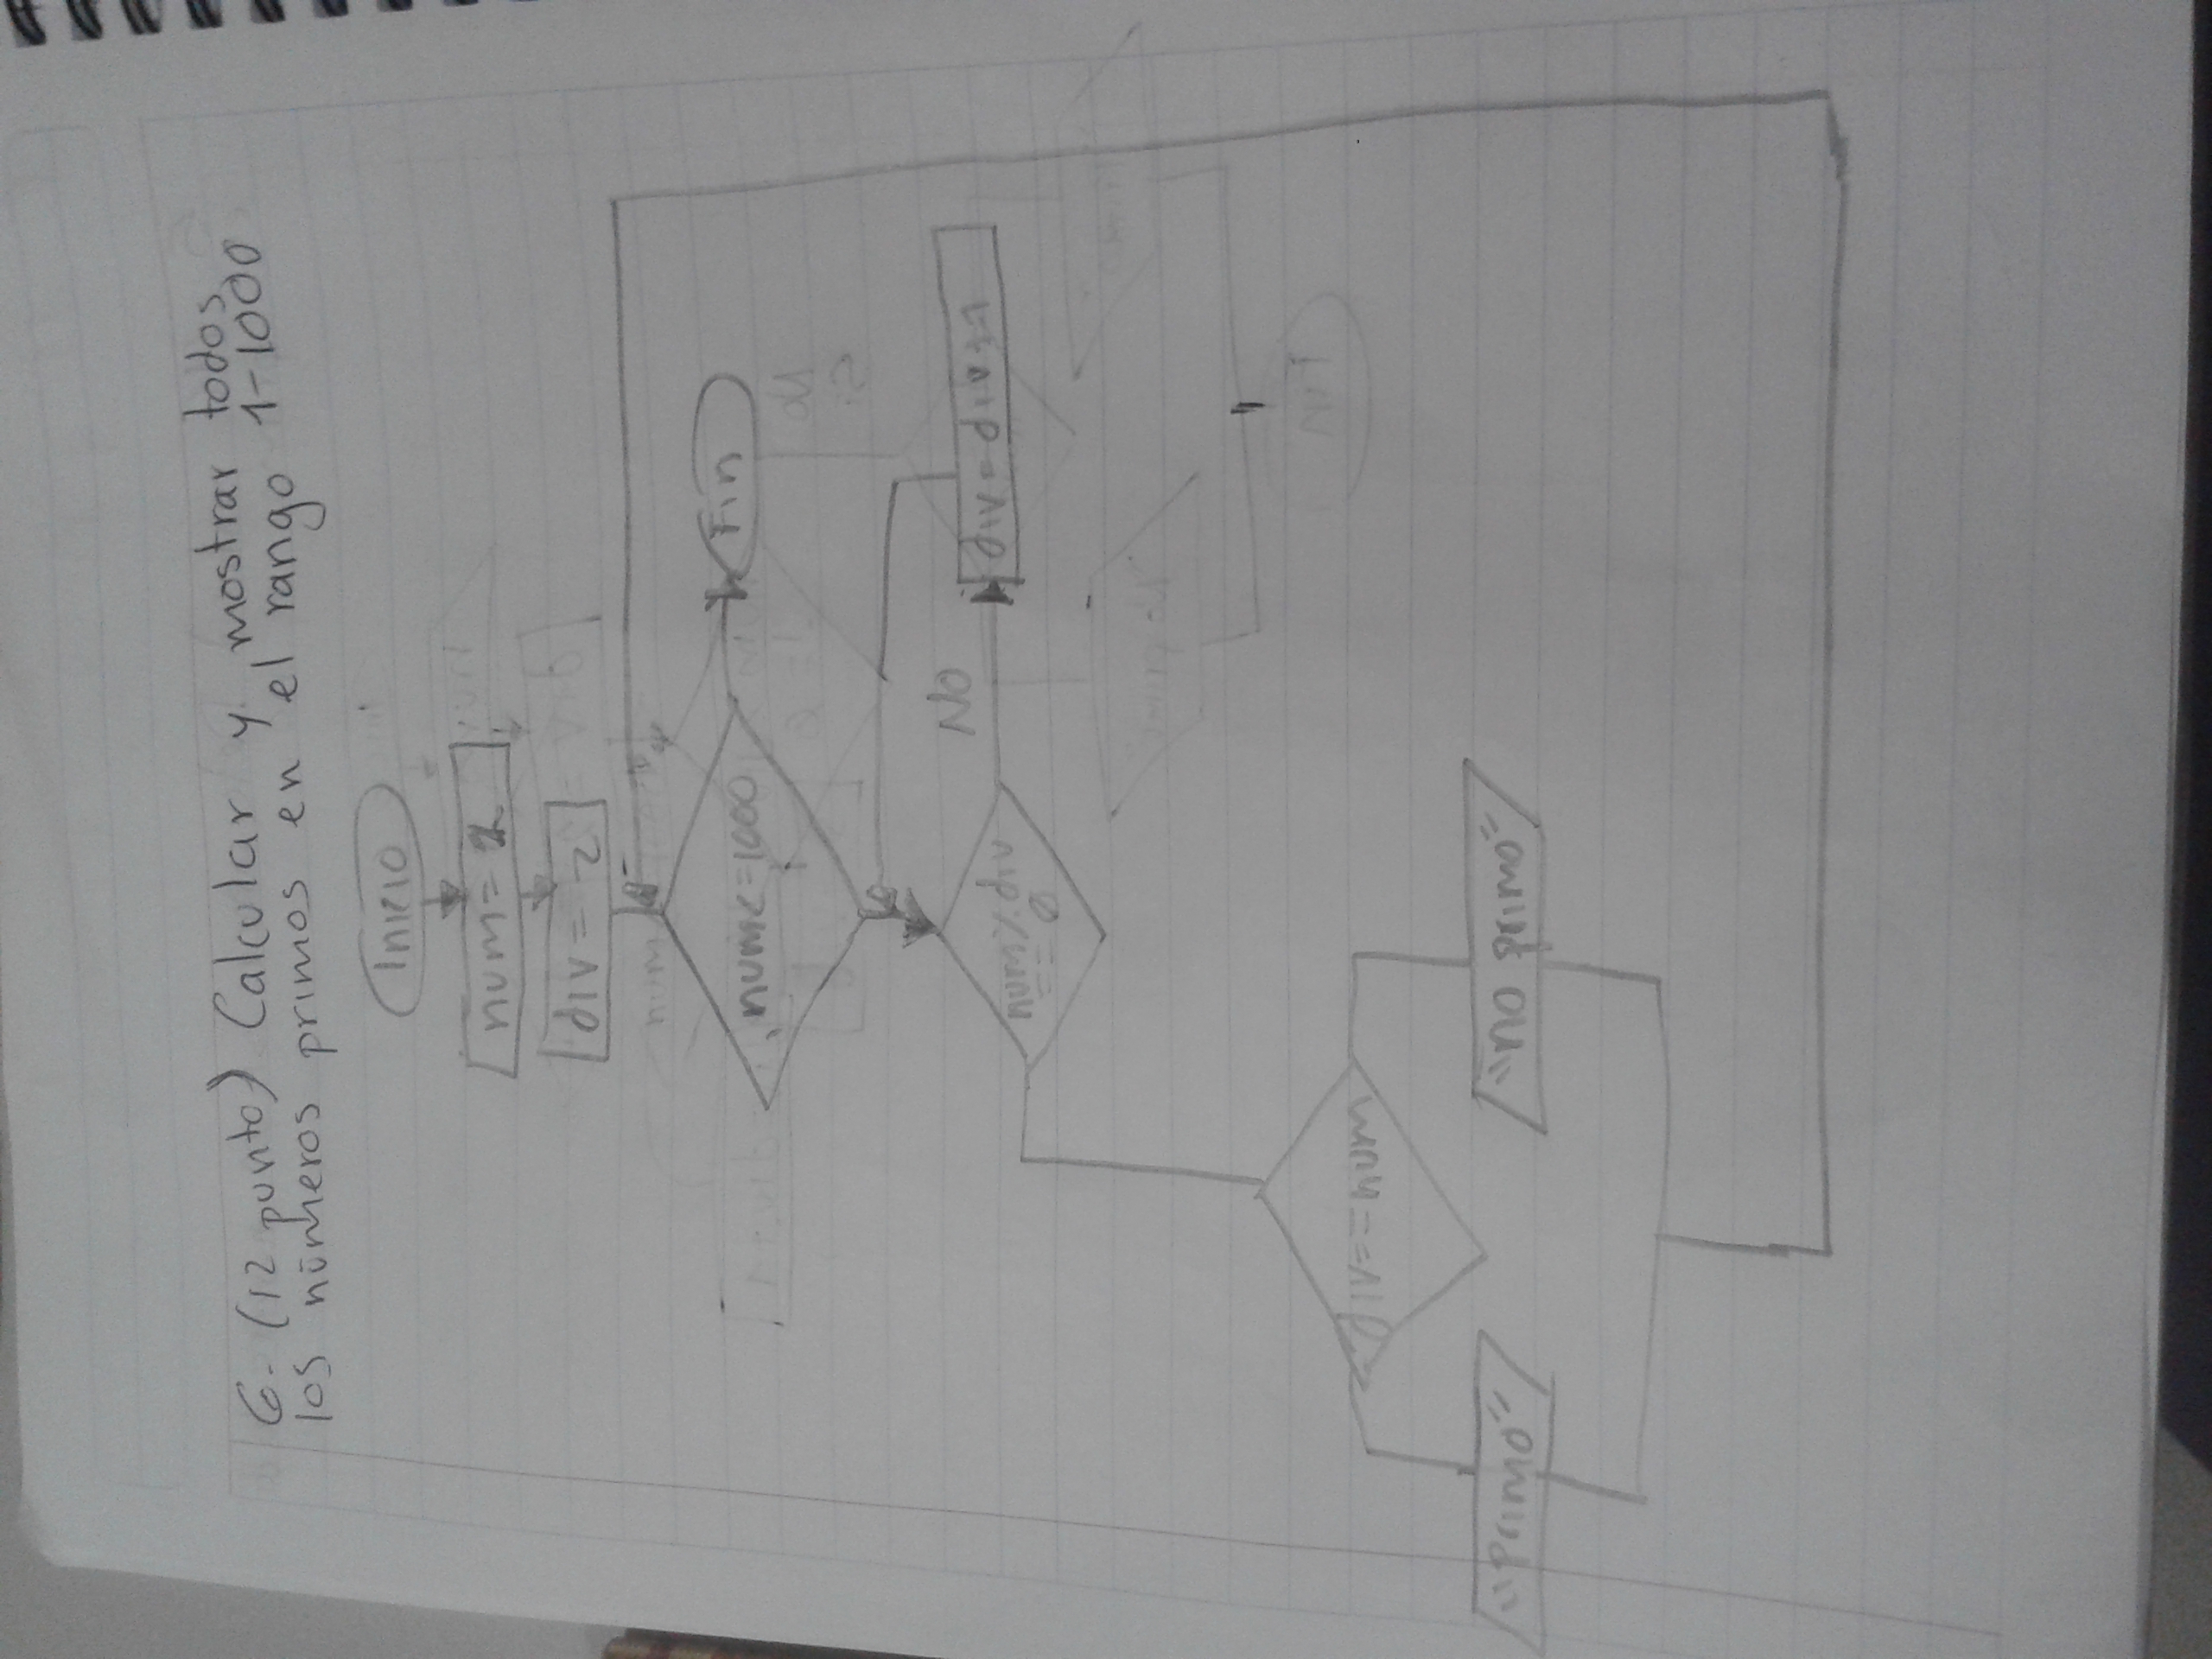 6.- (12 punto) Calcular y mostrar todos
los números primos en el rango 1-1000
Inicio
num=
div= 2
num<=1000
Fin
NO
num%div
== 0
div=div+1
div==num
"primo"
"no primo"